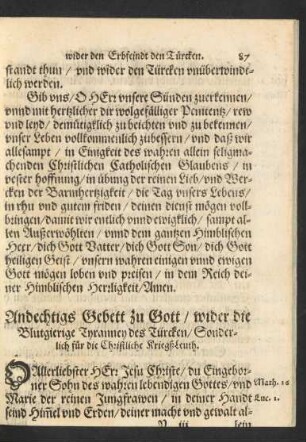 wider den Erbfeindt den Türcken. 87
standt thun / vnd wider den Türcken vnüberwindt-
lich werden.
Gib vns / O HErr vnsere Sünden zuerkennen /
vnnd mit hertzlicher dir wolgefälliger Penitentz / rew
vnd leyd / demütigklich zu beichten vnd zu bekennen /
vnser Leben vollkommenlich zubessern / vnd daß wir
allesampt / in Einigkeit des wahren allein seligma-
chenden Christlichen Catholischen Glaubens / in
vester hoffnung / in übung der reinen Lieb / vnd Wer-
cken der Barmhertzigkeit / die Tag vnsers Lebens /
in rhu vnd gutem friden / deinen dienst mögen voll-
bringen / damit wir entlich vnnd ewigklich / sampt al-
len Außerwöhlten / vnnd dem gantzen Himblischen
Heer / dich Gott Vatter / dich Gott Son / dich Gott
heiligen Geist / vnsern wahren einigen vnnd ewigen
Gott mögen loben vnd preisen / in dem Reich dei-
ner Himblischen Herrligkeit / Amen.
Andechtigs Gebett zu Gott / wider die
Blutgierige Tyranney des Türcken / Sonder-
lich für die Christliche Kriegßleuth.
O Allerliebster HErr Jesu Christe / du Eingebor-
ner Sohn des wahren lebendigen Gottes / vnd Math. 16
Marie der reinen Jungfrawen / in deiner Handt Luc. 1.
seind Him̃el vnd Erden / deiner macht vnd gewalt al-
iij sein